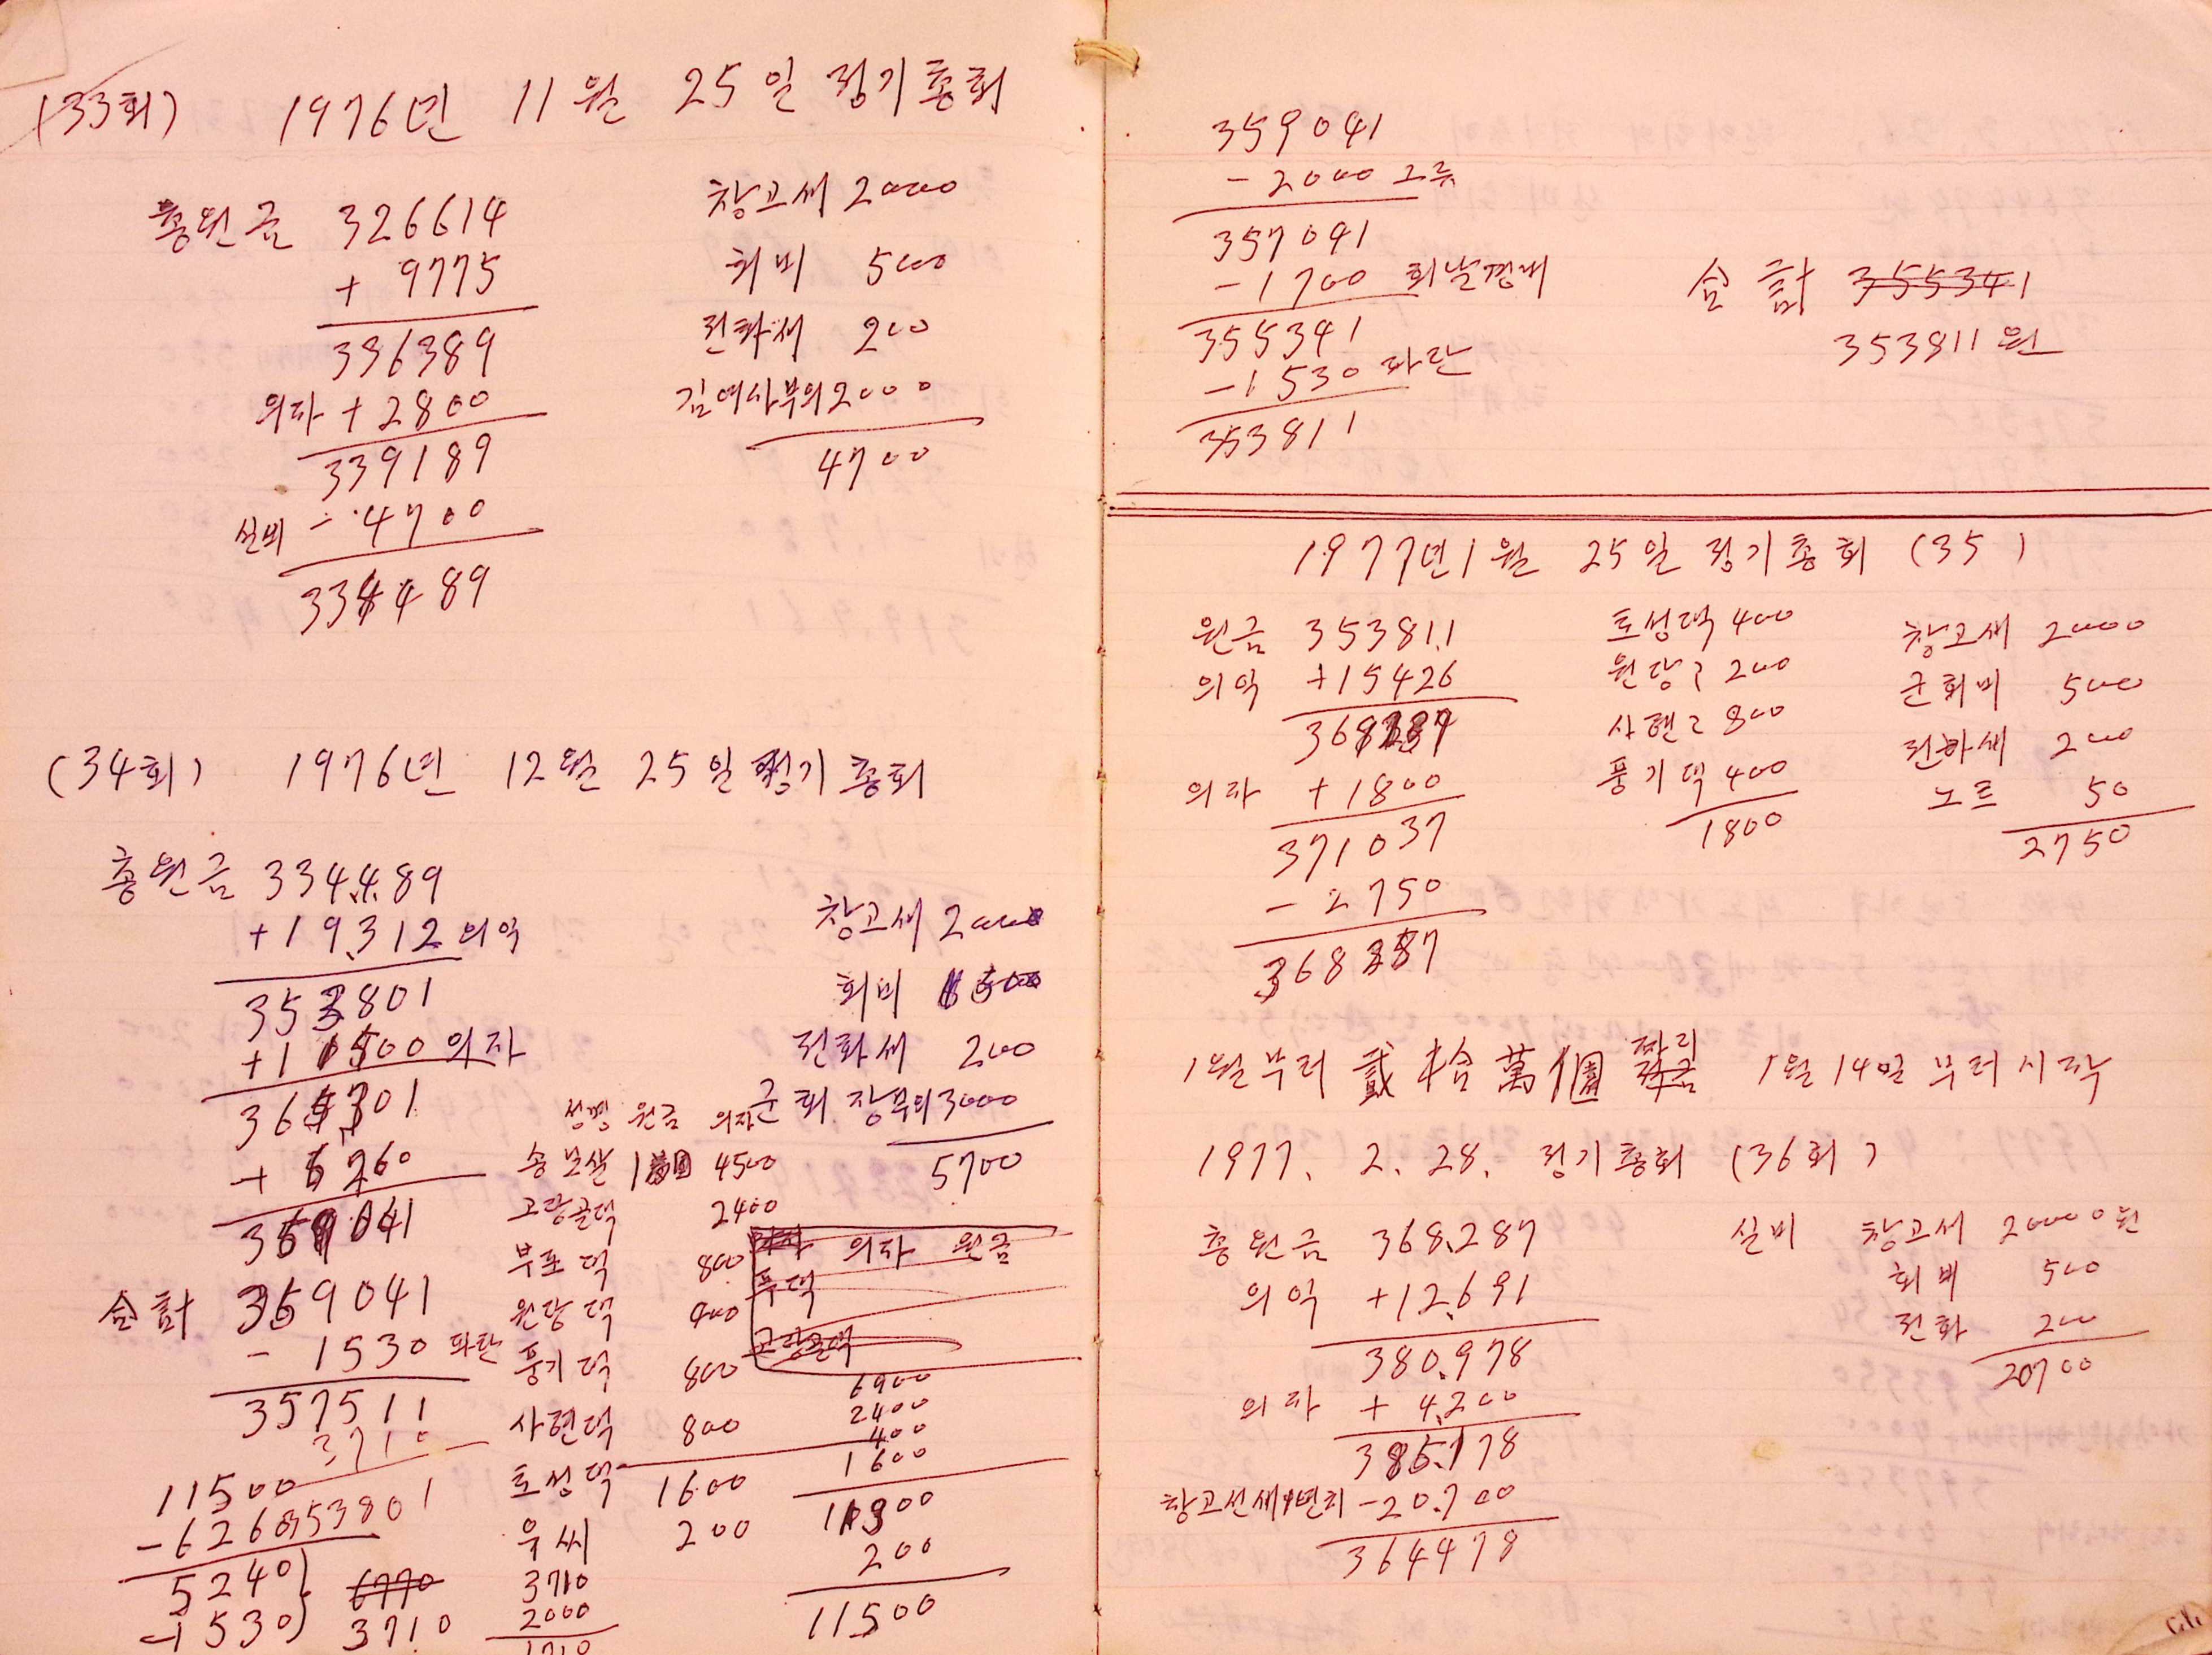 (33회) 1976년 11월 25일 정기총회
총원금 326614
+ 9775
336389
의자 + 2800
339189
실비 - 4700
334489
창고세 2000
회비 500
전화세 200
김여사부의 2000
4700
(34회) 1976년 12월 25일 정기총회
총원금 334489
+19312 의익
353801
+11500 의자
365301
+ 6260
359041
合計 359041
- 1530 파란
357511
3710
11500
-6260 353801
5240
-1530
6770
3710
창고세 2000
회비 500
전화세 200
군회장부의 3000
5700
성명 원금 의자
송보살 1萬 4500
고랑골댁 2400
부포댁 800
원당댁 400
풍기댁 800
사현댁 800
토성댁 1600
우씨 200
3710
2000
1710
의자 원금
고랑골댁
6900
2400
400
1600
11300
200
11500
359041
-2000 고류
357041
-1700 회날경비
355341
-1530 파란
353811
合計 355341
353811원
1977년 1월 25일 정기총회 (35)
원금 353811
의익 +15426
368237
의자 +1800
371037
-2750
368287
토성댁 400
원당〃 200
사현〃 800
풍기댁 400
1800
창고세 2000
군회비 500
전화세 200
노트 50
2750
1월부터 貳拾萬個 짜리 1월 14일부터 시작
1977. 2. 28. 정기총회 (36회)
총원금 368.287
의익 +12.691
380.978
의자 + 4.200
385.178
창고선세1년치 -20.700
364478
실비 창고세 20000원
회비 500
전화 200
20700